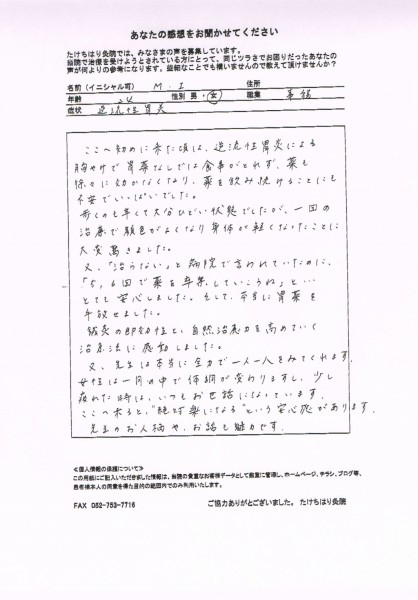 あなたの感想をお聞かせてください
たけちはり灸院では、みなさまの声を募集しています。
当院で治療を受けようとされている方にとって、同じツラさでお困りだったあなたの
声が何よりの参考になります。些細なことでも構いませんので教えて頂けませんか?
名前(イニシャル可) M.I 住所
年齢 24 性別 男・女 職業 事務
症状 逆流性胃炎
ここへ初めに来た頃は、逆流性胃炎による
胸やけで胃薬なしでは食事がとれず、薬も
徐々に効かなくなり、薬を飲み続けることにも
不安でいっぱいでした。
歩くのも辛くて大分ひどい状態でしたが、一回の
治療で顔色がよくなり身体が軽くなったことに
大変驚きました。
又、「治らない」と病院で言われていたのに、
「5,6回で薬を卒業していこうね」と…
とても安心しました。そして、本当に胃薬を
手放せました。
鍼灸の即効性と自然治癒力を高めていく
治療法に感動しました。
又、先生は本当に全力で一人一人をみてくれます。
女性は一月の中で体調が変わりますし、少し
疲れた時は、いつもお世話になっています。
ここへ来ると、"絶対楽になる"という安心感があります。
先生のお人柄や、お話も魅力です。
≪個人情報の保護について≫
この用紙にご記入いただきました情報は、当院の貴重なお客様データとして厳重に管理し、ホームページ、チラシ、ブログ等、
患者様本人の同意を得た目的の範囲内でのみ利用いたします。
FAX 052-753-7716 ご協力ありがとございました。 たけちはり灸院